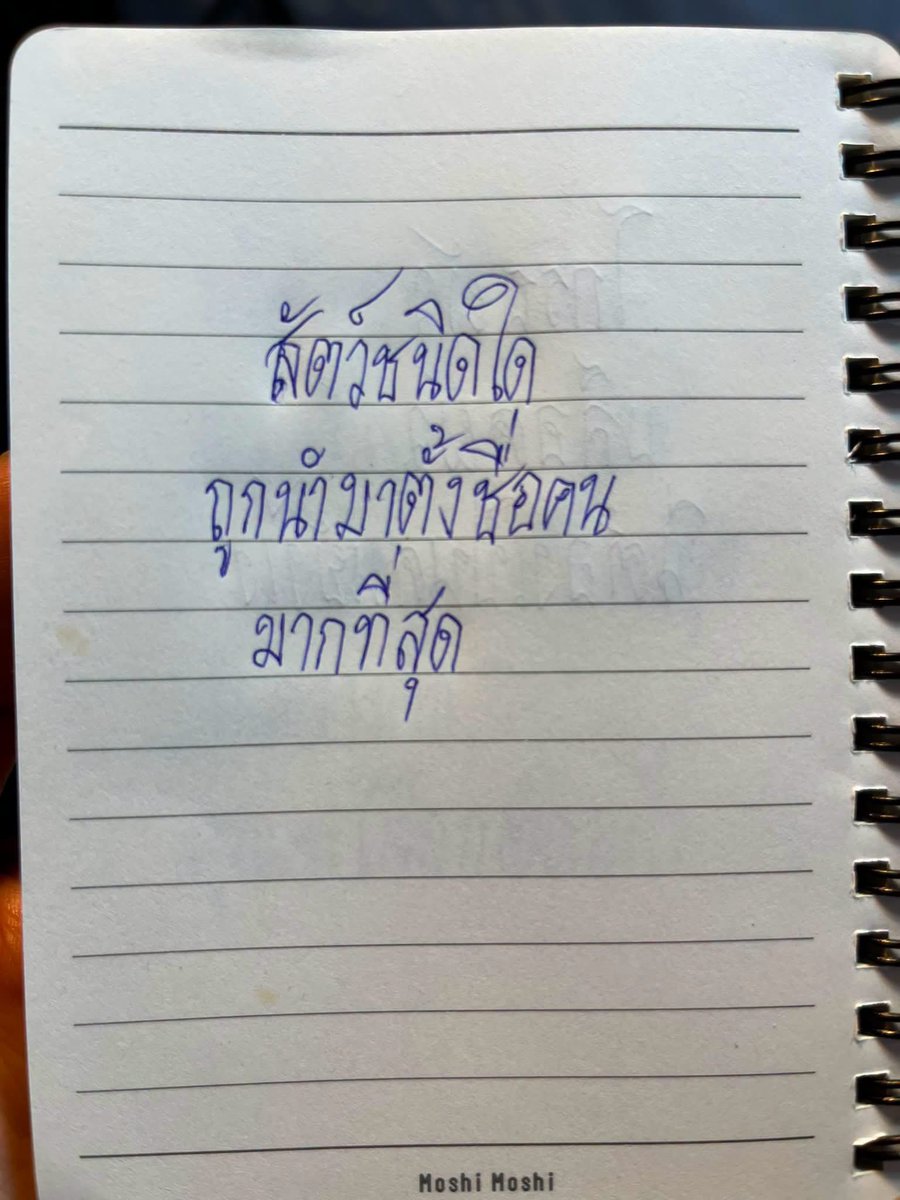 สัตว์ชนิดใด
ถูกนำมาตั้งชื่อคน
มากที่สุด
Moshi Moshi